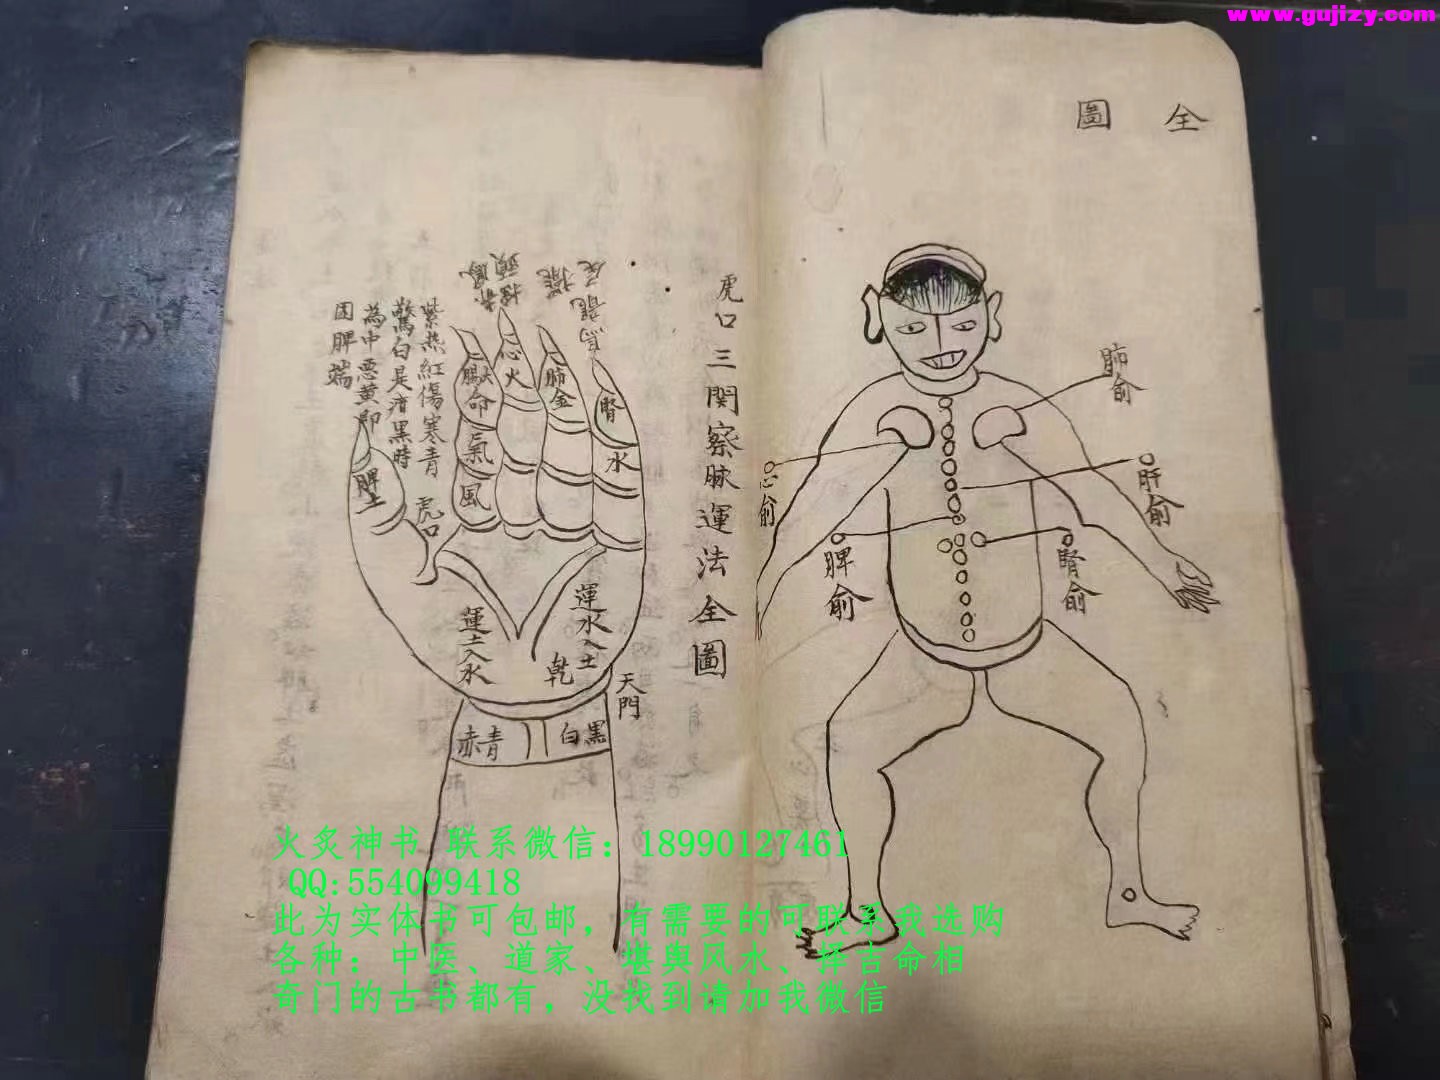 www.gujizy.com
全圖
肺俞
肝俞
腎俞
心俞
脾俞
虎口三関察脉運法全圖
腎
水
肺金
心火
命
氣
風
紫热紅傷寒青
驚白是疳黑時
為中悪黄即
困脾端
脾土
虎口
運水入土
乾
運土入水
天門
黑白
青赤
火炙神书 联系微信：18990127461
QQ:554099418
此为实体书可包邮，有需要的可联系我选购
各种：中医、道家、堪舆风水、择吉命相
奇门的古书都有，没找到请加我微信